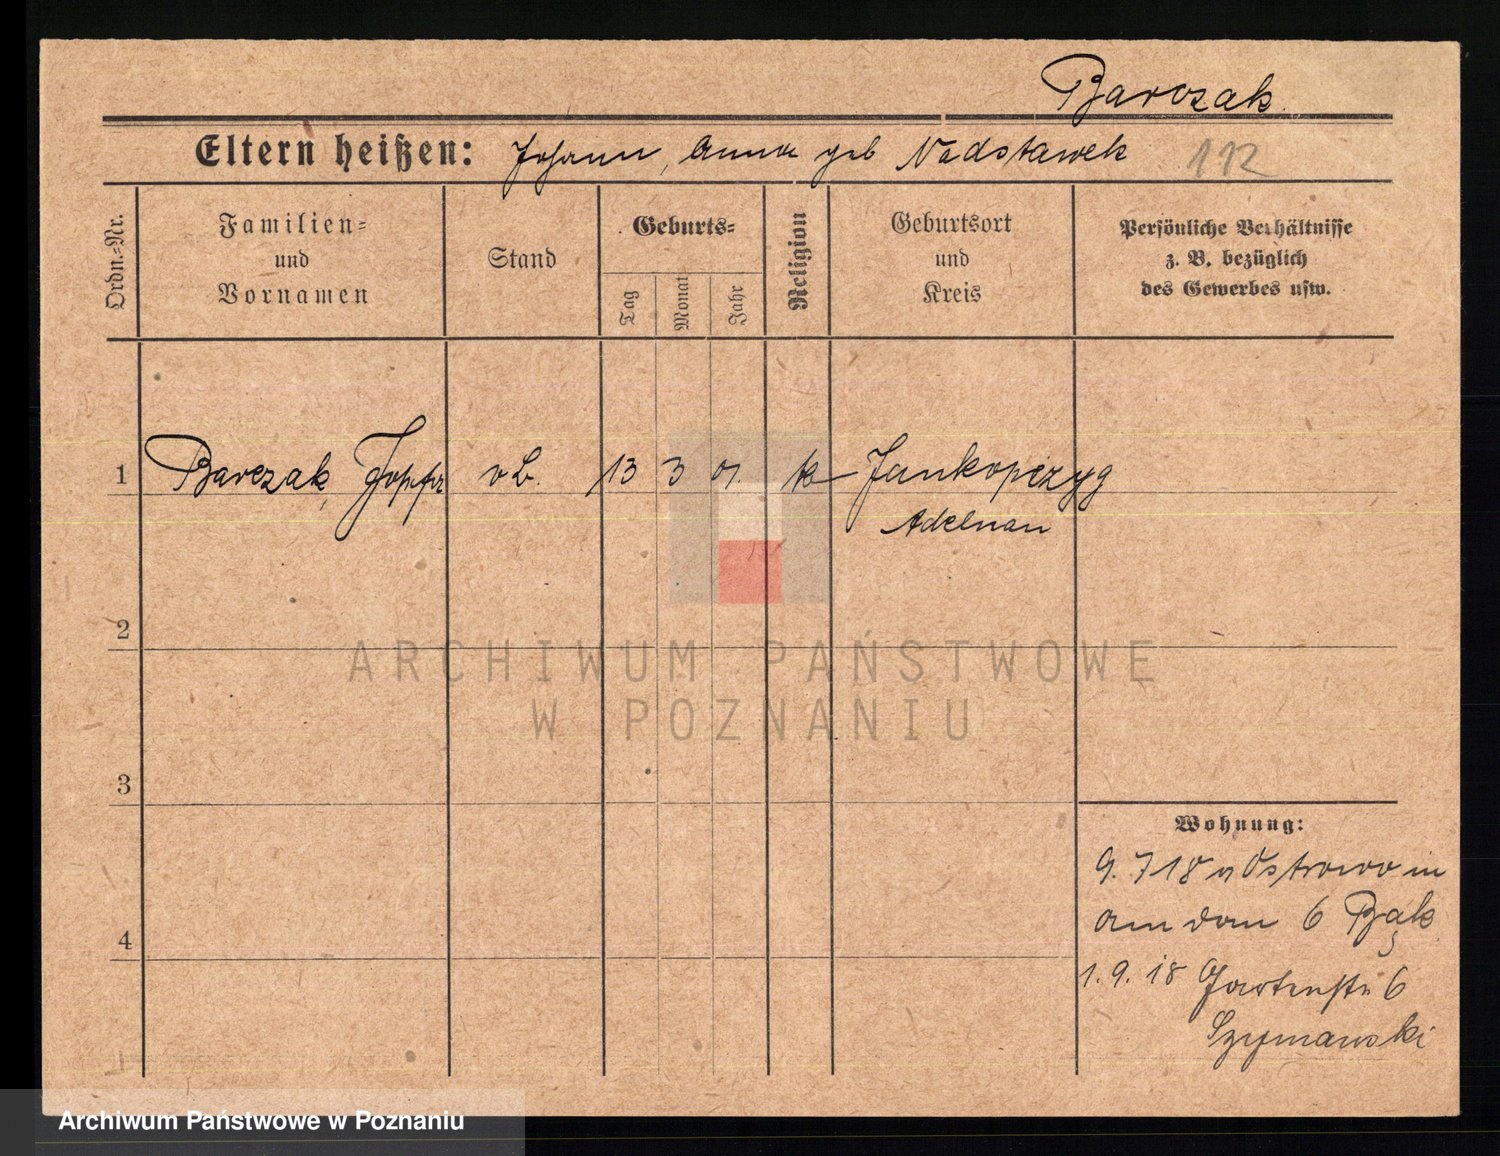 Barczak
Eltern heißen: Johann, Anna geb Nadstawek 112
Ordn.-Nr.
Familien-
und
Vornamen
Stand
Geburts-
Tag
Monat
Jahr
Religion
Geburtsort
und
Kreis
Persönliche Verhältnisse
z. B. bezüglich
des Gewerbes usw.
1 Barczak, 13 3 01. k Jankoprzyg
Adelnau
2
3
4
Wohnung:
9. 7 18 v Ostrowo in
am dom 6 Bąk
1. 9. 18 Gartenstr 6
Szymanski
ARCHIWUM PAŃSTWOWE
W POZNANIU
Archiwum Państwowe w Poznaniu